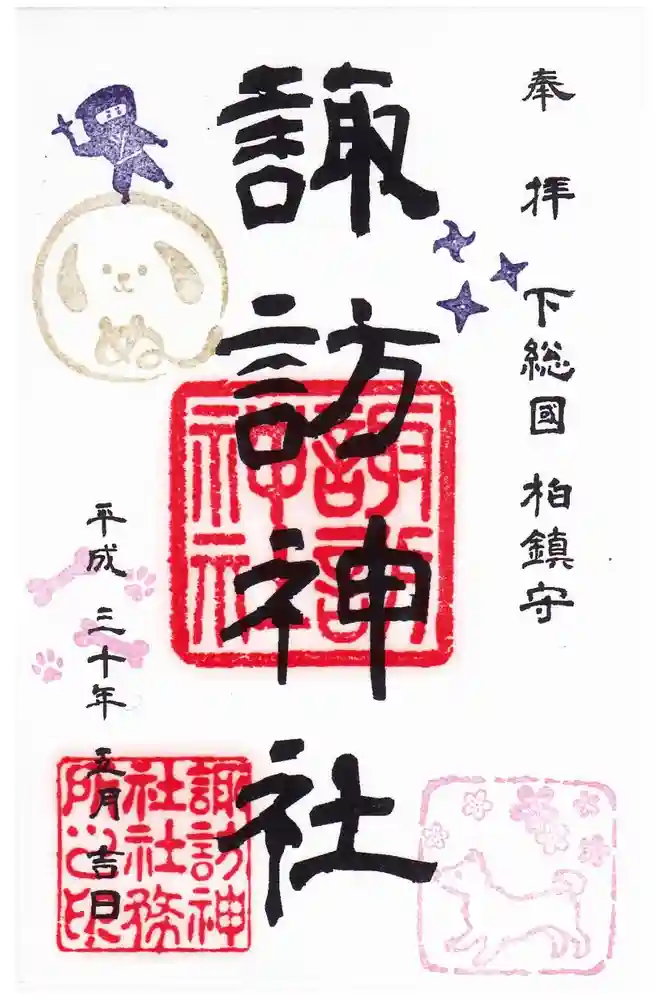 奉拝 下総國 柏鎮守
諏訪神社
諏訪
神社
諏訪神
社社務
所之印
ぬ
平成三十年五月吉日